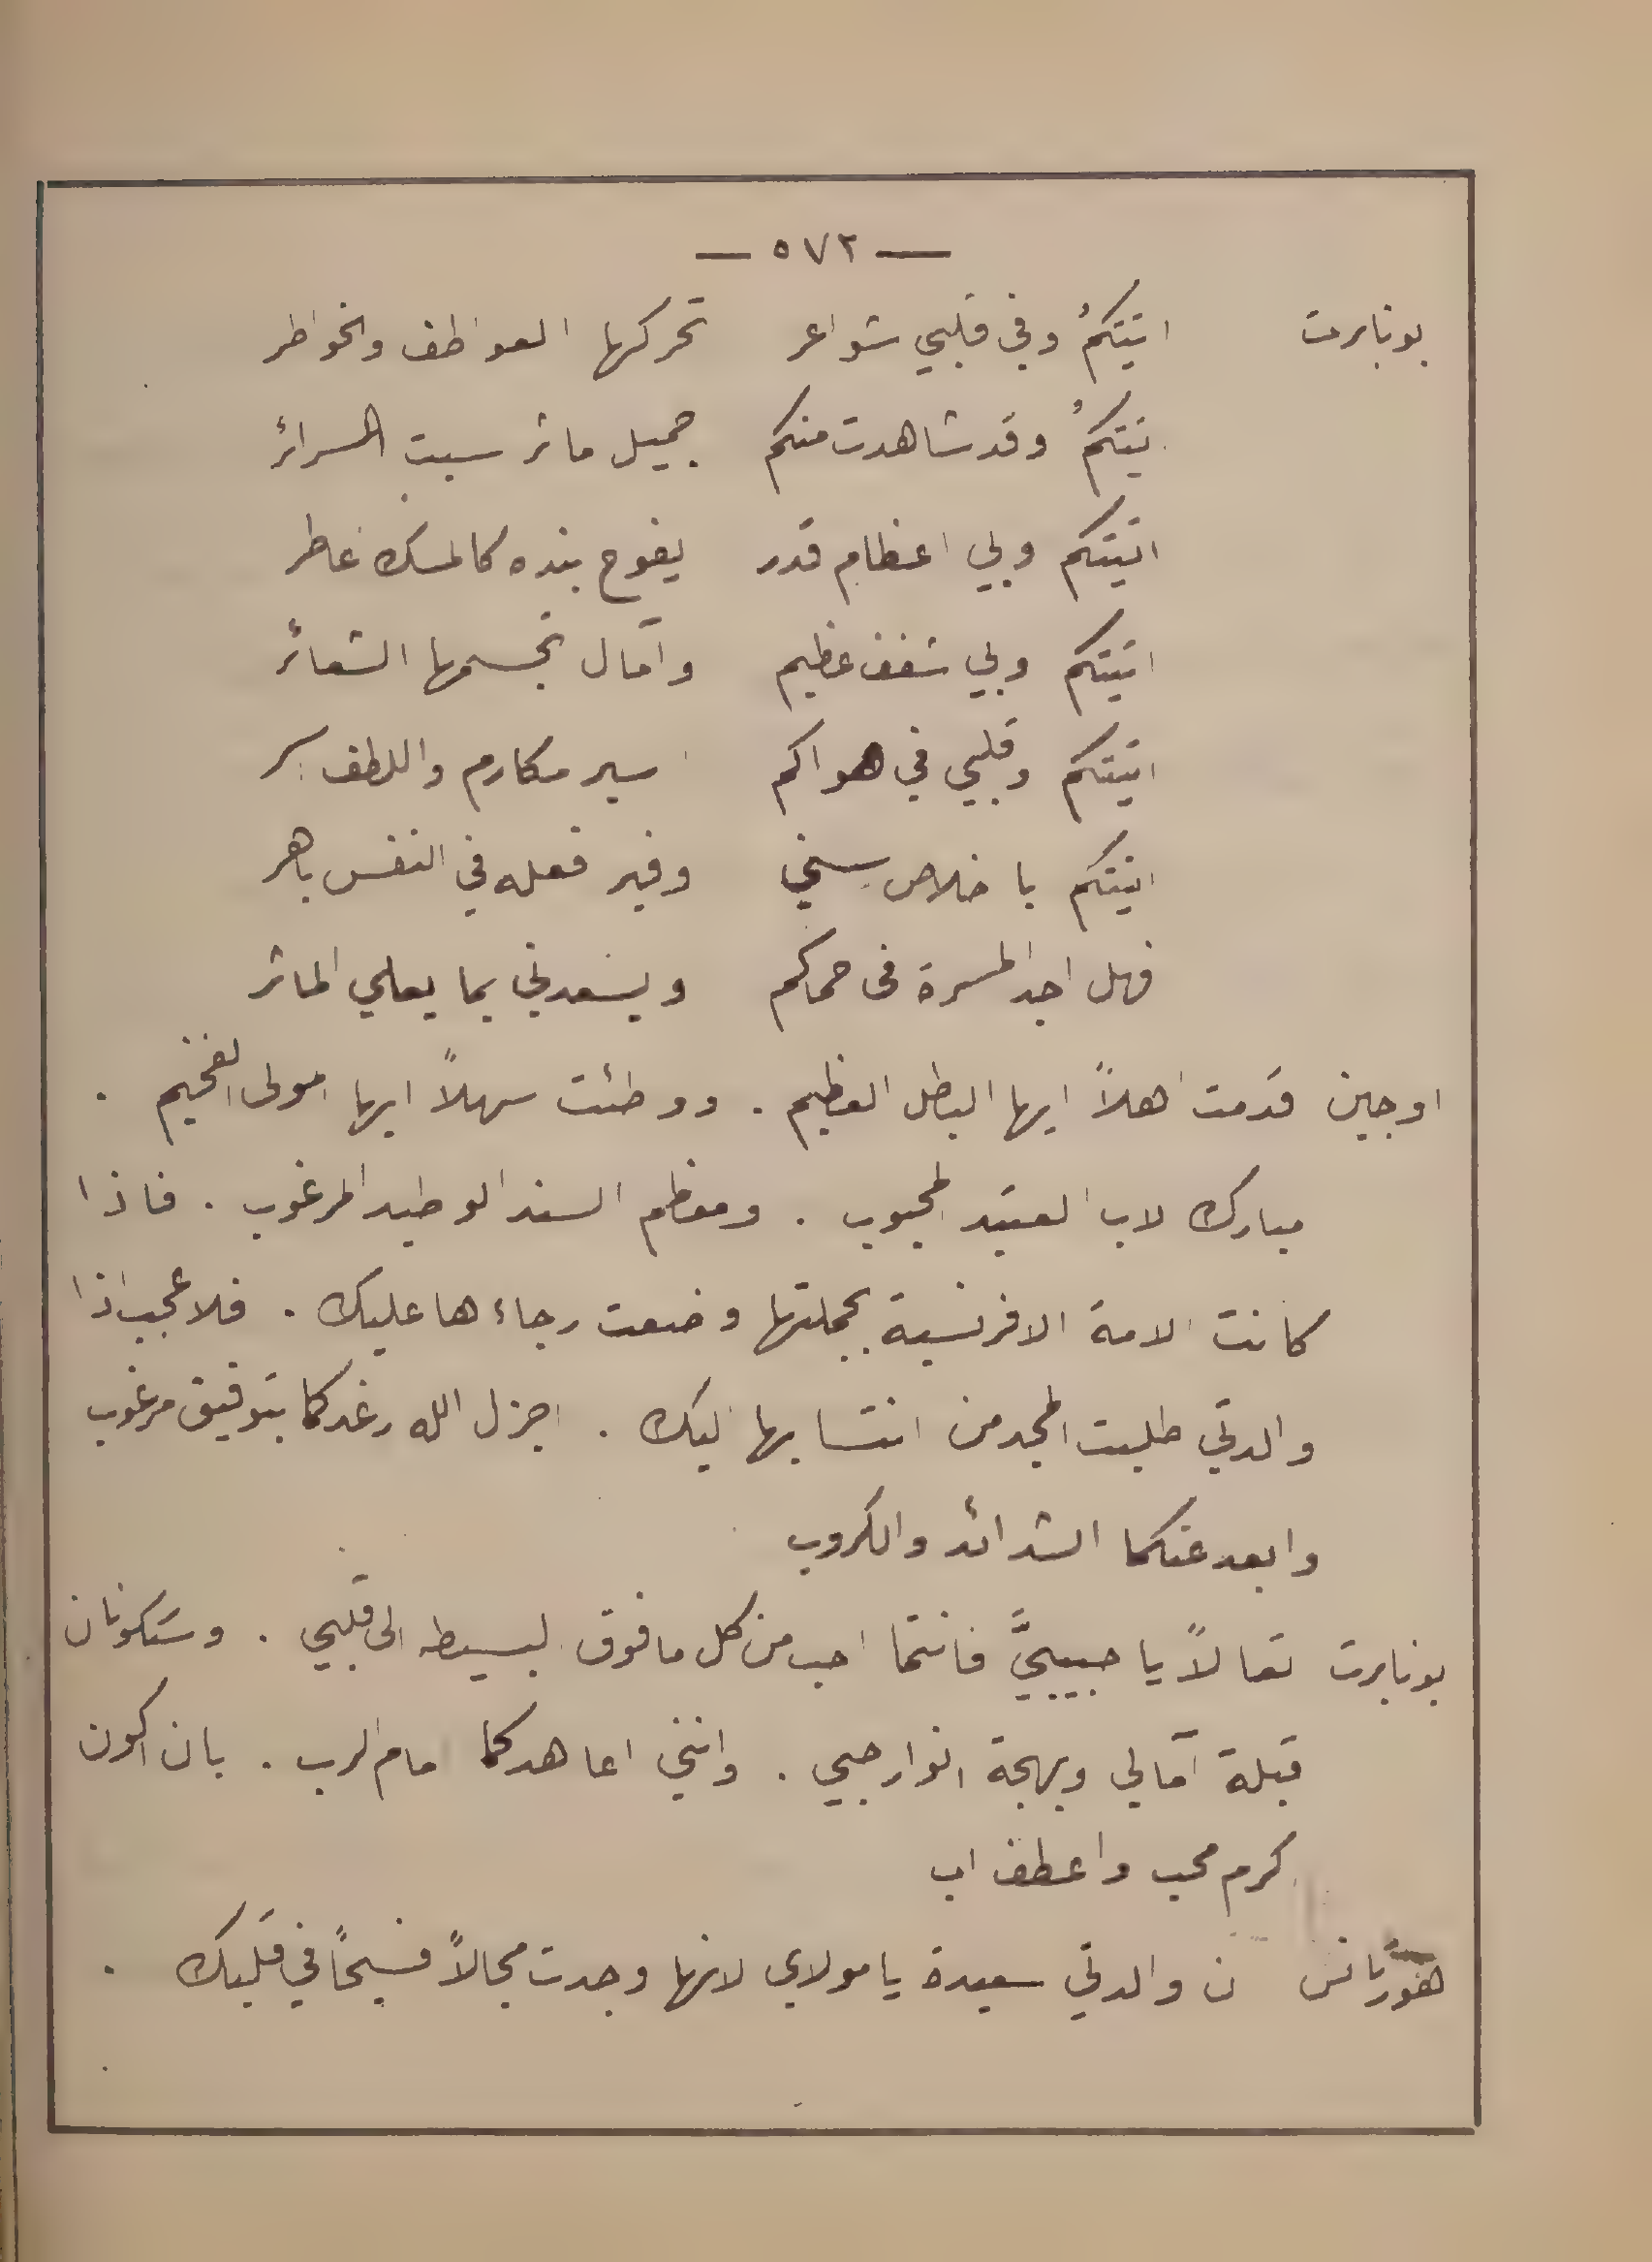 — ٥٧٢ —
بونابرت اتيتكمُ وفي قلبي شواعر تحركها العواطف والخواطر
تيتكمُ وقد شاهدت منكم جميل ماثر سبت السرائر
اتيتكم ولي اعظام قدر يفوح بنده كالمسك عاطر
اتيتكم ولي شغف عظيم وآمال تجسمها الشعائر
اتيتكم وقلبي في هواكم سير مكارم واللطف
اتيتكم باخلاص سني وفير فعله في النفس باهر
فهل اجد المسرة فى حماكم ويسعدني بما يعلي الماثر
اوجين قدمت اهلاً ايها البطل العظيم . ووطئت سهلاً ايها المولى الفخيم .
مبارك لاب العتيد المحبوب . ومعظم السند الوطيد المرغوب . فاذا
كانت الامة الافرنسية بجملتها وضعت رجاءها عليك . فلا عجب اذا
والدتي طلبت المجد من انتسابها ليك . اجزل الله رغدكما بتوفيق مرغوب
وابعد عنكما الشدائد والكروب
بونابرت تعالاً يا حبيبيَّ فانتما احب من كل ما فوق لبسيطه الى قلبي . وستكونان
قبلة آمالي وبهجة انوار حبي . وانني اعاهدكما امام الرب . بان اكون
كرم محب واعطف اب
هورتانس ن والدتي سعيدة يا مولاي لانها وجدت مجالاً فسيحاً في قلبك .